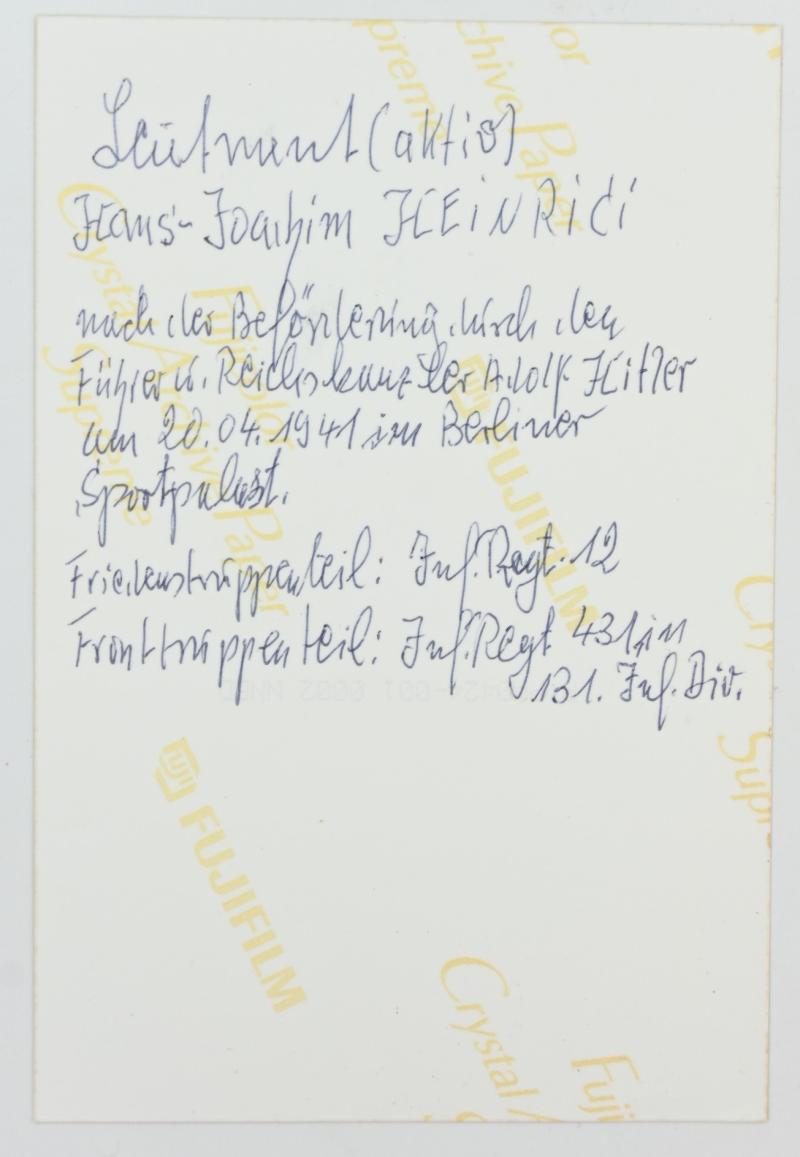 Leutnant (aktiv)
Hans-Joachim HEINRICI
nach der Beförderung durch den
Führer u. Reichskanzler Adolf Hitler
am 20.04.1941 im Berliner
Sportpalast.
Friedenstruppenteil: Inf. Regt. 12
Fronttruppenteil: Inf. Regt 431 in
131. Inf. Div.
FUJIFILM
FUJIFILM
Crystal Archive Paper
Supreme
Fujicolor
Crystal
Fuji